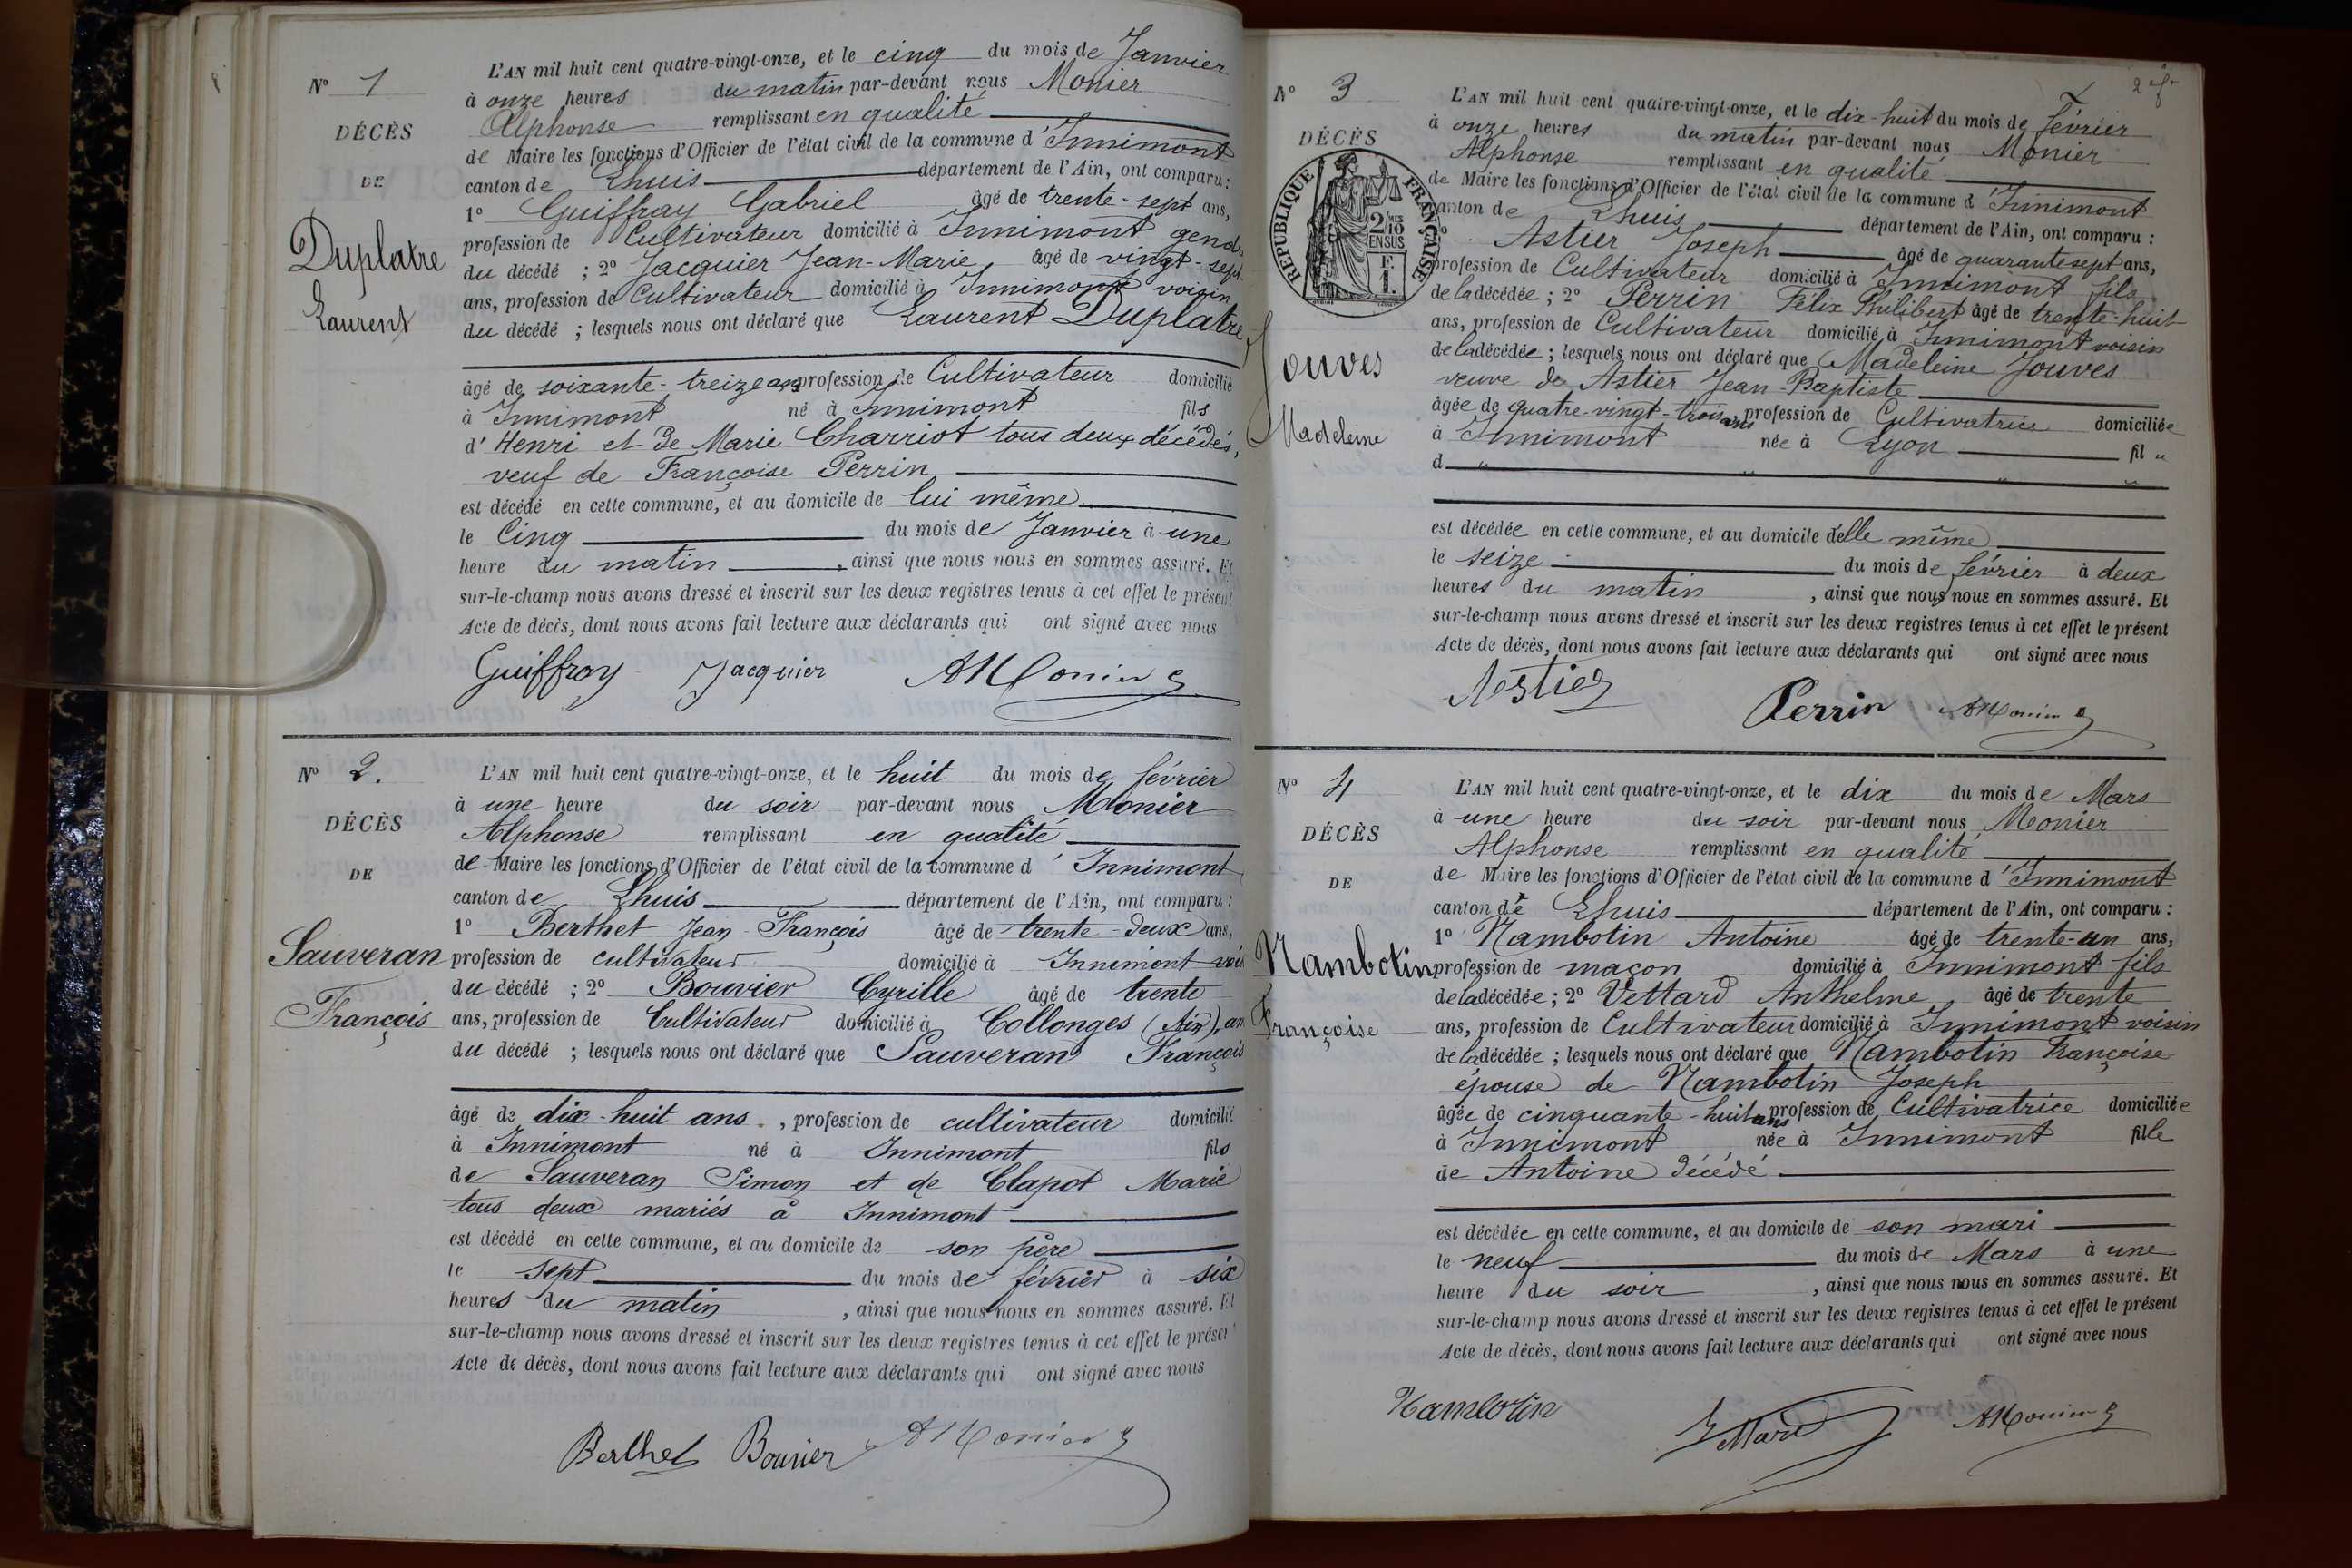 N° 1
DÉCÈS
DE
Duplatre
Laurent
L'AN mil huit cent quatre-vingt-onze, et le cinq du mois de Janvier
à onze heures du matin par-devant nous Monier
Alphonse remplissant en qualité
de Maire les fonctions d'Officier de l'état civil de la commune d'Innimont
canton de Lhuis département de l'Ain, ont comparu :
1° Guiffray Gabriel âgé de trente-sept ans,
profession de Cultivateur domicilié à Innimont gendre
du décédé ; 2° Jacquier Jean-Marie âgé de vingt-sept
ans, profession de Cultivateur domicilié à Innimont voisin
du décédé ; lesquels nous ont déclaré que Laurent Duplatre
âgé de soixante-treize ans profession de Cultivateur domicilié
à Innimont né à Innimont fils
d'Henri et de Marie Charriot tous deux décédés,
veuf de Françoise Perrin
est décédé en cette commune, et au domicile de lui même
le Cinq du mois de Janvier à une
heure du matin, ainsi que nous nous en sommes assuré. Et
sur-le-champ nous avons dressé et inscrit sur les deux registres tenus à cet effet le présent
Acte de décès, dont nous avons fait lecture aux déclarants qui ont signé avec nous
Guiffroy Jacquier AMonier
N° 2.
DÉCÈS
DE
Sauveran
François
L'AN mil huit cent quatre-vingt-onze, et le huit du mois de février
à une heure du soir par-devant nous Monier
Alphonse remplissant en qualité
de Maire les fonctions d'Officier de l'état civil de la commune d'Innimont
canton de Lhuis département de l'Ain, ont comparu :
1° Berthet Jean-François âgé de trente-deux ans,
profession de cultivateur domicilié à Innimont voi
du décédé ; 2° Bouvier Cyrille âgé de trente
ans, profession de Cultivateur domicilié à Collonges (Ain), am
du décédé ; lesquels nous ont déclaré que Sauveran François
âgé de dix-huit ans, profession de cultivateur domicilié
à Innimont né à Innimont fils
de Sauveran Simon et de Clapot Marie
tous deux mariés à Innimont
est décédé en cette commune, et au domicile de son père
le sept du mois de février à six
heures du matin, ainsi que nous nous en sommes assuré. Et
sur-le-champ nous avons dressé et inscrit sur les deux registres tenus à cet effet le présent
Acte de décès, dont nous avons fait lecture aux déclarants qui ont signé avec nous
Berthet Bouvier AMonier
2
N° 3
DÉCÈS
RÉPUBLIQUE FRANÇAISE
2/10
EN SUS
1 F.
Jouves
Madeleine
L'AN mil huit cent quatre-vingt-onze, et le dix-huit du mois de février
à onze heures du matin par-devant nous Monier
Alphonse remplissant en qualité
de Maire les fonctions d'Officier de l'état civil de la commune d'Innimont
canton de Lhuis département de l'Ain, ont comparu :
1° Astier Joseph âgé de quarante sept ans,
profession de Cultivateur domicilié à Innimont fils
de la décédée ; 2° Perrin Félix Philibert âgé de trente-huit
ans, profession de Cultivateur domicilié à Innimont voisin
de la décédée ; lesquels nous ont déclaré que Madeleine Jouves
veuve de Astier Jean-Baptiste
âgée de quatre-vingt-trois ans profession de Cultivatrice domiciliée
à Innimont née à Lyon fil "
d " " " "
est décédée en cette commune, et au domicile d'elle même
le seize du mois de février à deux
heures du matin, ainsi que nous nous en sommes assuré. Et
sur-le-champ nous avons dressé et inscrit sur les deux registres tenus à cet effet le présent
Acte de décès, dont nous avons fait lecture aux déclarants qui ont signé avec nous
Astier Perrin AMonier
N° 4
DÉCÈS
DE
Nambotin
Françoise
L'AN mil huit cent quatre-vingt-onze, et le dix du mois de Mars
à une heure du soir par-devant nous Monier
Alphonse remplissant en qualité
de Maire les fonctions d'Officier de l'état civil de la commune d'Innimont
canton de Lhuis département de l'Ain, ont comparu :
1° Nambotin Antoine âgé de trente-un ans,
profession de maçon domicilié à Innimont fils
de la décédée ; 2° Vettard Anthelme âgé de trente
ans, profession de Cultivateur domicilié à Innimont voisin
de la décédée ; lesquels nous ont déclaré que Nambotin Françoise
épouse de Nambotin Joseph
âgée de cinquante-huit ans profession de Cultivatrice domiciliée
à Innimont née à Innimont fille
de Antoine décédé
est décédée en cette commune, et au domicile de son mari
le neuf du mois de Mars à une
heure du soir, ainsi que nous nous en sommes assuré. Et
sur-le-champ nous avons dressé et inscrit sur les deux registres tenus à cet effet le présent
Acte de décès, dont nous avons fait lecture aux déclarants qui ont signé avec nous
Nambotin AMonier